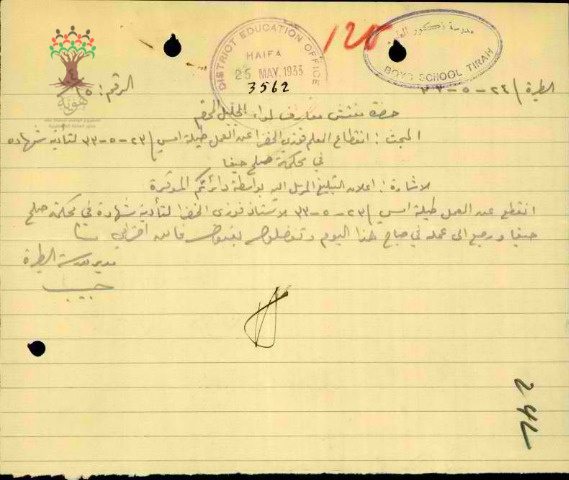 DISTRICT EDUCATION OFFICE
HAIFA
25 MAY. 1933
3562
125
مدرسة ذكور الطيرة
BOYS SCHOOL TIRAH
هوية
الرقم: ٥
الطيرة / ٢٤-٥-٣٣
حضرة مفتش معارف لواء الجليل المحترم
المبحث: انقطاع المعلم فوزي الخضرا عن العمل طيلة امس / ٢٣-٥-٣٣ لتأدية شهاده
في محكمة صلح حيفا
الاشارة: اعلان التبليغ المرسل اليه بواسطة دائرتكم الموقرة
انقطع عن العمل طيلة امس / ٢٣-٥-٣٣ الاستاذ فوزي الخضرا لتأدية شهادة في محكمة صلح
حيفا ورجع الى عمله في صباح هذا اليوم وتفضلوا بقبول فائق احترامي سيدي
مدير مدرسة الطيرة
242